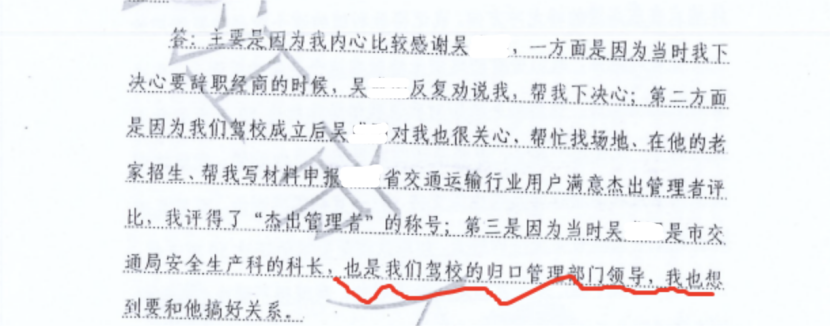 答：主要是因为我内心比较感谢吴 ，一方面是因为当时我下
决心要辞职经商的时候，吴 反复劝说我，帮我下决心；第二方面
是因为我们驾校成立后吴 对我也很关心，帮忙找场地、在他的老
家招生、帮我写材料申报 省交通运输行业用户满意杰出管理者评
比，我评得了“杰出管理者”的称号；第三是因为当时吴 是市交
通局安全生产科的科长，也是我们驾校的归口管理部门领导，我也想
到要和他搞好关系。